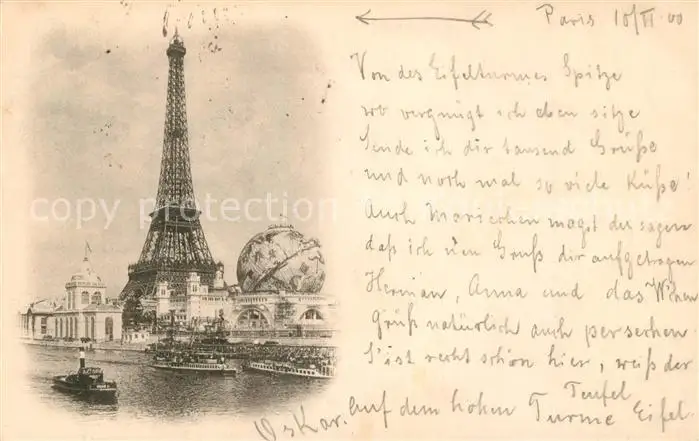 Paris 10/VI 00
Von des Eifelturmes Spitze
wo vergnügt ich eben sitze
Sende ich dir tausend Grüße
und noch mal so viele Küße!
Auch Mariechen magst du sagen
daß ich n'en Gruß dir aufgetragen
Herman, Anna und das
Grüß natürlich auch
S'ist recht schön hier, weiß der
Teufel
Auf dem hohen Turme Eifel.
Oskar.
copyright
copyright